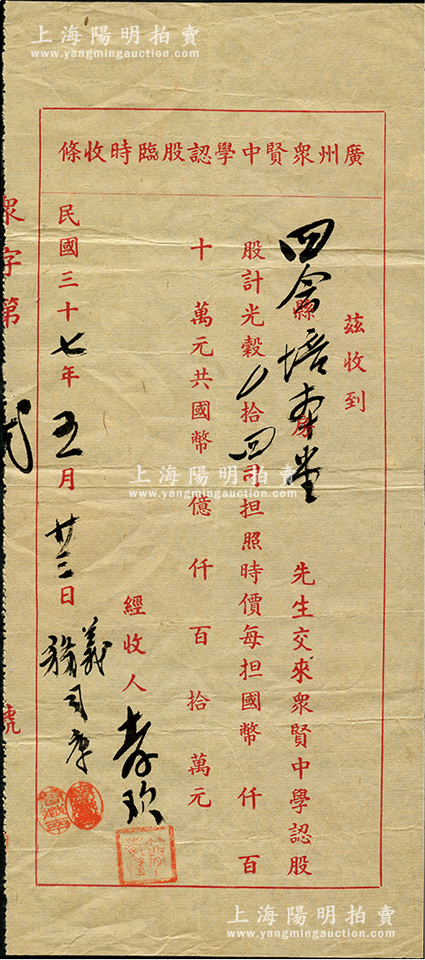 上海陽明拍賣
www.yangmingauction.com
廣州眾賢中學認股臨時收條
茲收到
四會縣培本房堂 先生交來眾賢中學認股
股計光穀 拾四司担照時價每担國幣 仟 百
十 萬元共國幣 億 仟 百 拾 萬元
經收人 孝欢
義務司庫
民國三十七年五月廿三日
眾字第 號
上海陽明拍賣
www.yangmingauction.com
上海陽明拍賣
www.yangmingauction.com